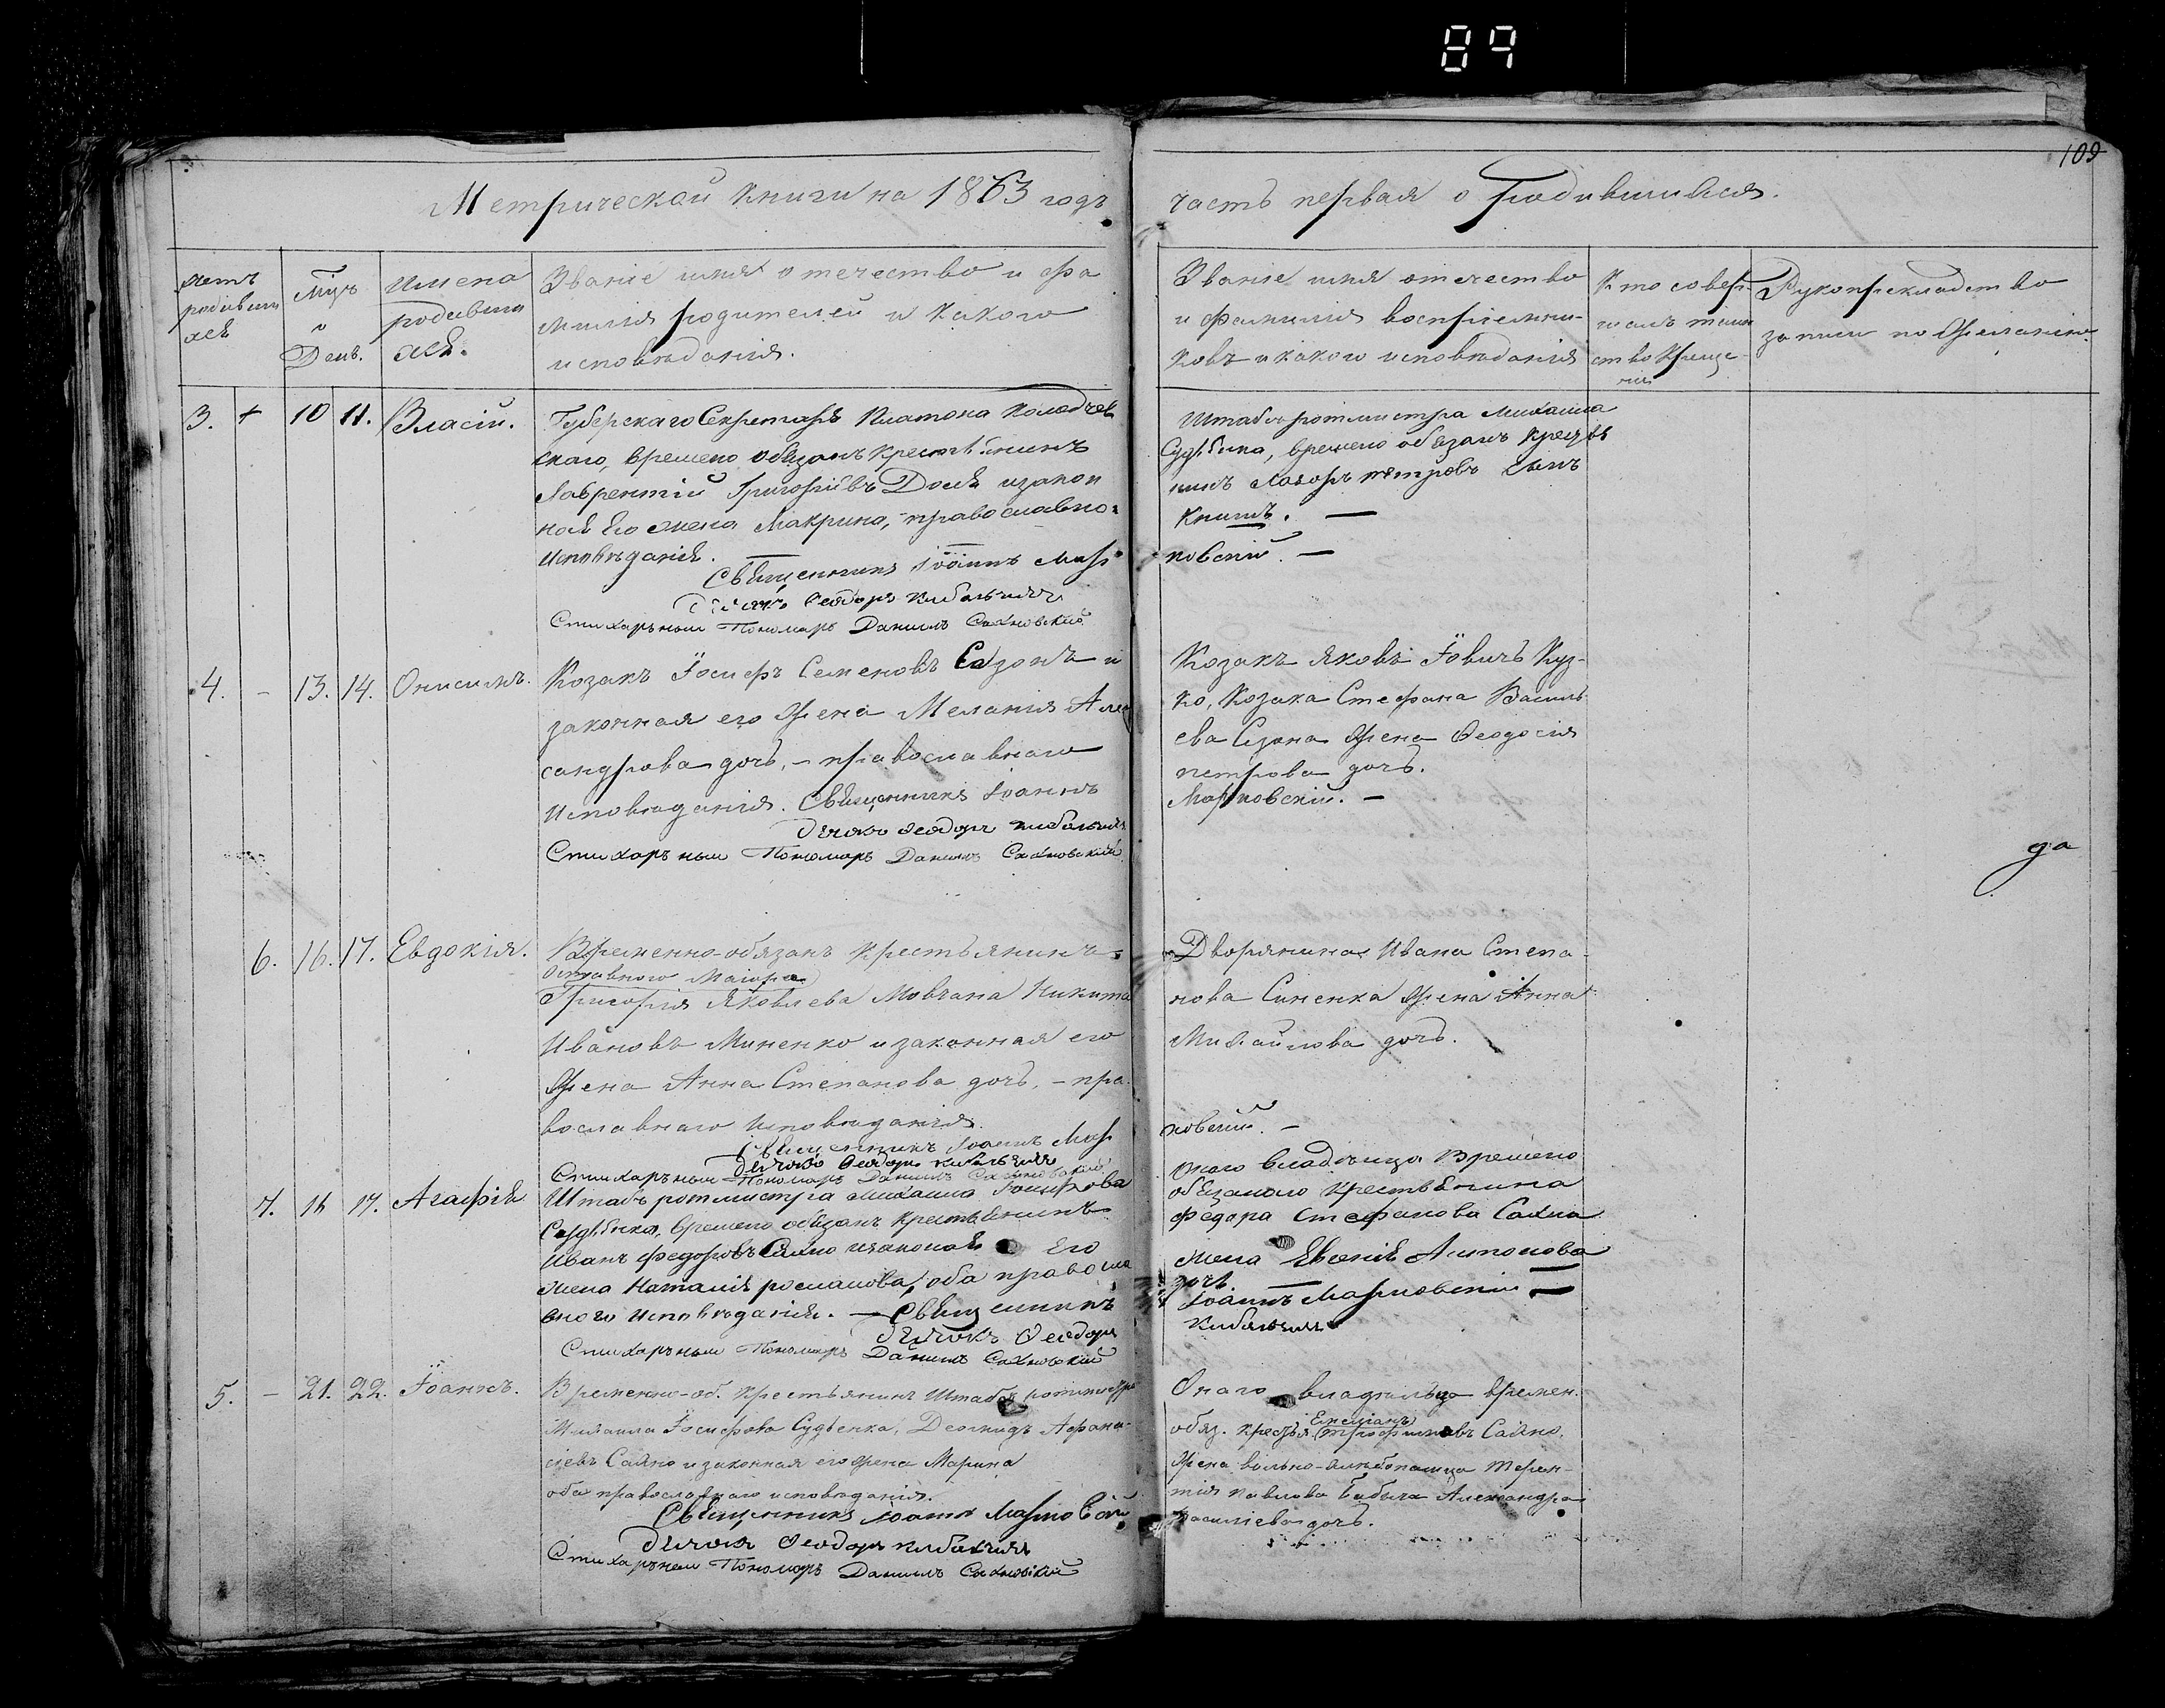 89
109
Метрической книги на 1863 годъ
часть первая о родившихся.
Имена
родивши
хся.
Мцъ
и
День.
Званіе имя отечество и фа
милія родителей и какого
исповѣданія.
Званіе имя отечество
и фамилія воспріемни-
ковъ и какого исповѣданія
Кто совер-
шалъ таин
ство Креще-
нія
Рукоприкладство
записи по желанію.
3. + 10 11. Власій.
Губерскаго Секретаря Платона
скаго, времено обязанъ крестьянинъ
Лаврентій Григоріевъ изакон
ная его жена Макрина, православно
исповѣданія.
Священникъ Іоаннъ Мар
Дьячокъ Феодоръ
Стихарный Пономарь Даниилъ Сахновскій
Штабъ ротмистра Михаила
Судьенка, времено обязанъ крестья
нинъ петровъ сынъ
Книшъ. —
новскій. —
4. - 13. 14. Онисимъ.
Козакъ Іосифъ Семеновъ и
законная его жена Меланія Алек
сандрова дочь, - православнаго
исповѣданія. Священникъ Іоаннъ
Дьячокъ Феодоръ
Стихарный Пономарь Даниилъ Сахновскій
Козакъ Яковъ Іовичъ Куз-
ко, Козака Стефана Василь
ева жена Феодосія
петрова дочь.
Марновскій. —
да
6. 16. 17. Евдокія.
Временно-обязанъ крестьянинъ
отставного Маіора
Григорія Яковлева Мовчана Никита
Ивановъ Миненко и законная его
жена Анна Степанова дочь, - пра
вославнаго исповѣданія.
Священникъ Іоаннъ Мар
Дьячокъ Феодоръ
Стихарный Пономарь Даниилъ Сахновскій
Дворянина Ивана Степа-
нова Синенка жена Анна
Михайлова дочь.
новскій. —
7. 16 17. Агафія
Штабъ ротмистра Михаила Іосифова
Судьенка, времено обязанъ крестьянинъ
Иванъ Федоровъ Сахно изаконая его
жена Наталія романова, оба правосла
вного исповѣданія. — Священникъ
Дьячокъ Феодоръ
Стихарный Пономарь Даниилъ Сахновскій
Оного владѣльца времено
обязаного крестьянина
Федора Стефанова Сахна
жена Антонова
дочь.
Іоаннъ Марновскій —
5. - 21. 22. Іоаннъ.
Временно-об. крестьянинъ Штабъ ротмистра
Михаила Іосифова Судьенка, Афана-
сіевъ Сахно и законная его жена Марина
оба православнаго исповѣданія.
Священникъ Іоаннъ Марновскій
Дьячокъ Феодоръ
Стихарный Пономарь Даниилъ Сахновскій
Онаго владѣльца времен.
обяз. крестья. Сахно.
Жена вольно-хлѣбопашца Терен-
тія Павлова Бабыча Александра
Василіева дочь.